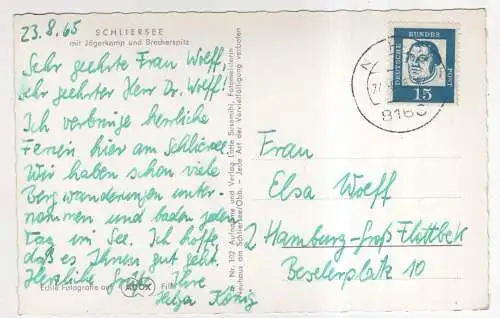 23.8.65
SCHLIERSEE
mit Jägerkamp und Brecherspitz
Sehr geehrte Frau Wolff,
Sehr geehrter Herr Dr. Wolff!
Ich verbringe herrliche
Ferien hier am Schliersee.
Wir haben schon viele
Bergwanderungen unter-
nommen und baden jeden
Tag im See. Ich hoffe,
daß es Ihnen gut geht.
Herzliche Grüße Ihre
Helga König
Echte Fotografie auf ADOX Film
Nr. 102 Aufnahme und Verlag Lotte Susemihl, Fotomeisterin
Neuhaus am Schliersee/Obb. - Jede Art der Vervielfältigung verboten
DEUTSCHE BUNDES POST
15
8160
Frau
Elsa Wolff
2 Hamburg-Groß Flottbek
Beselerplatz 10